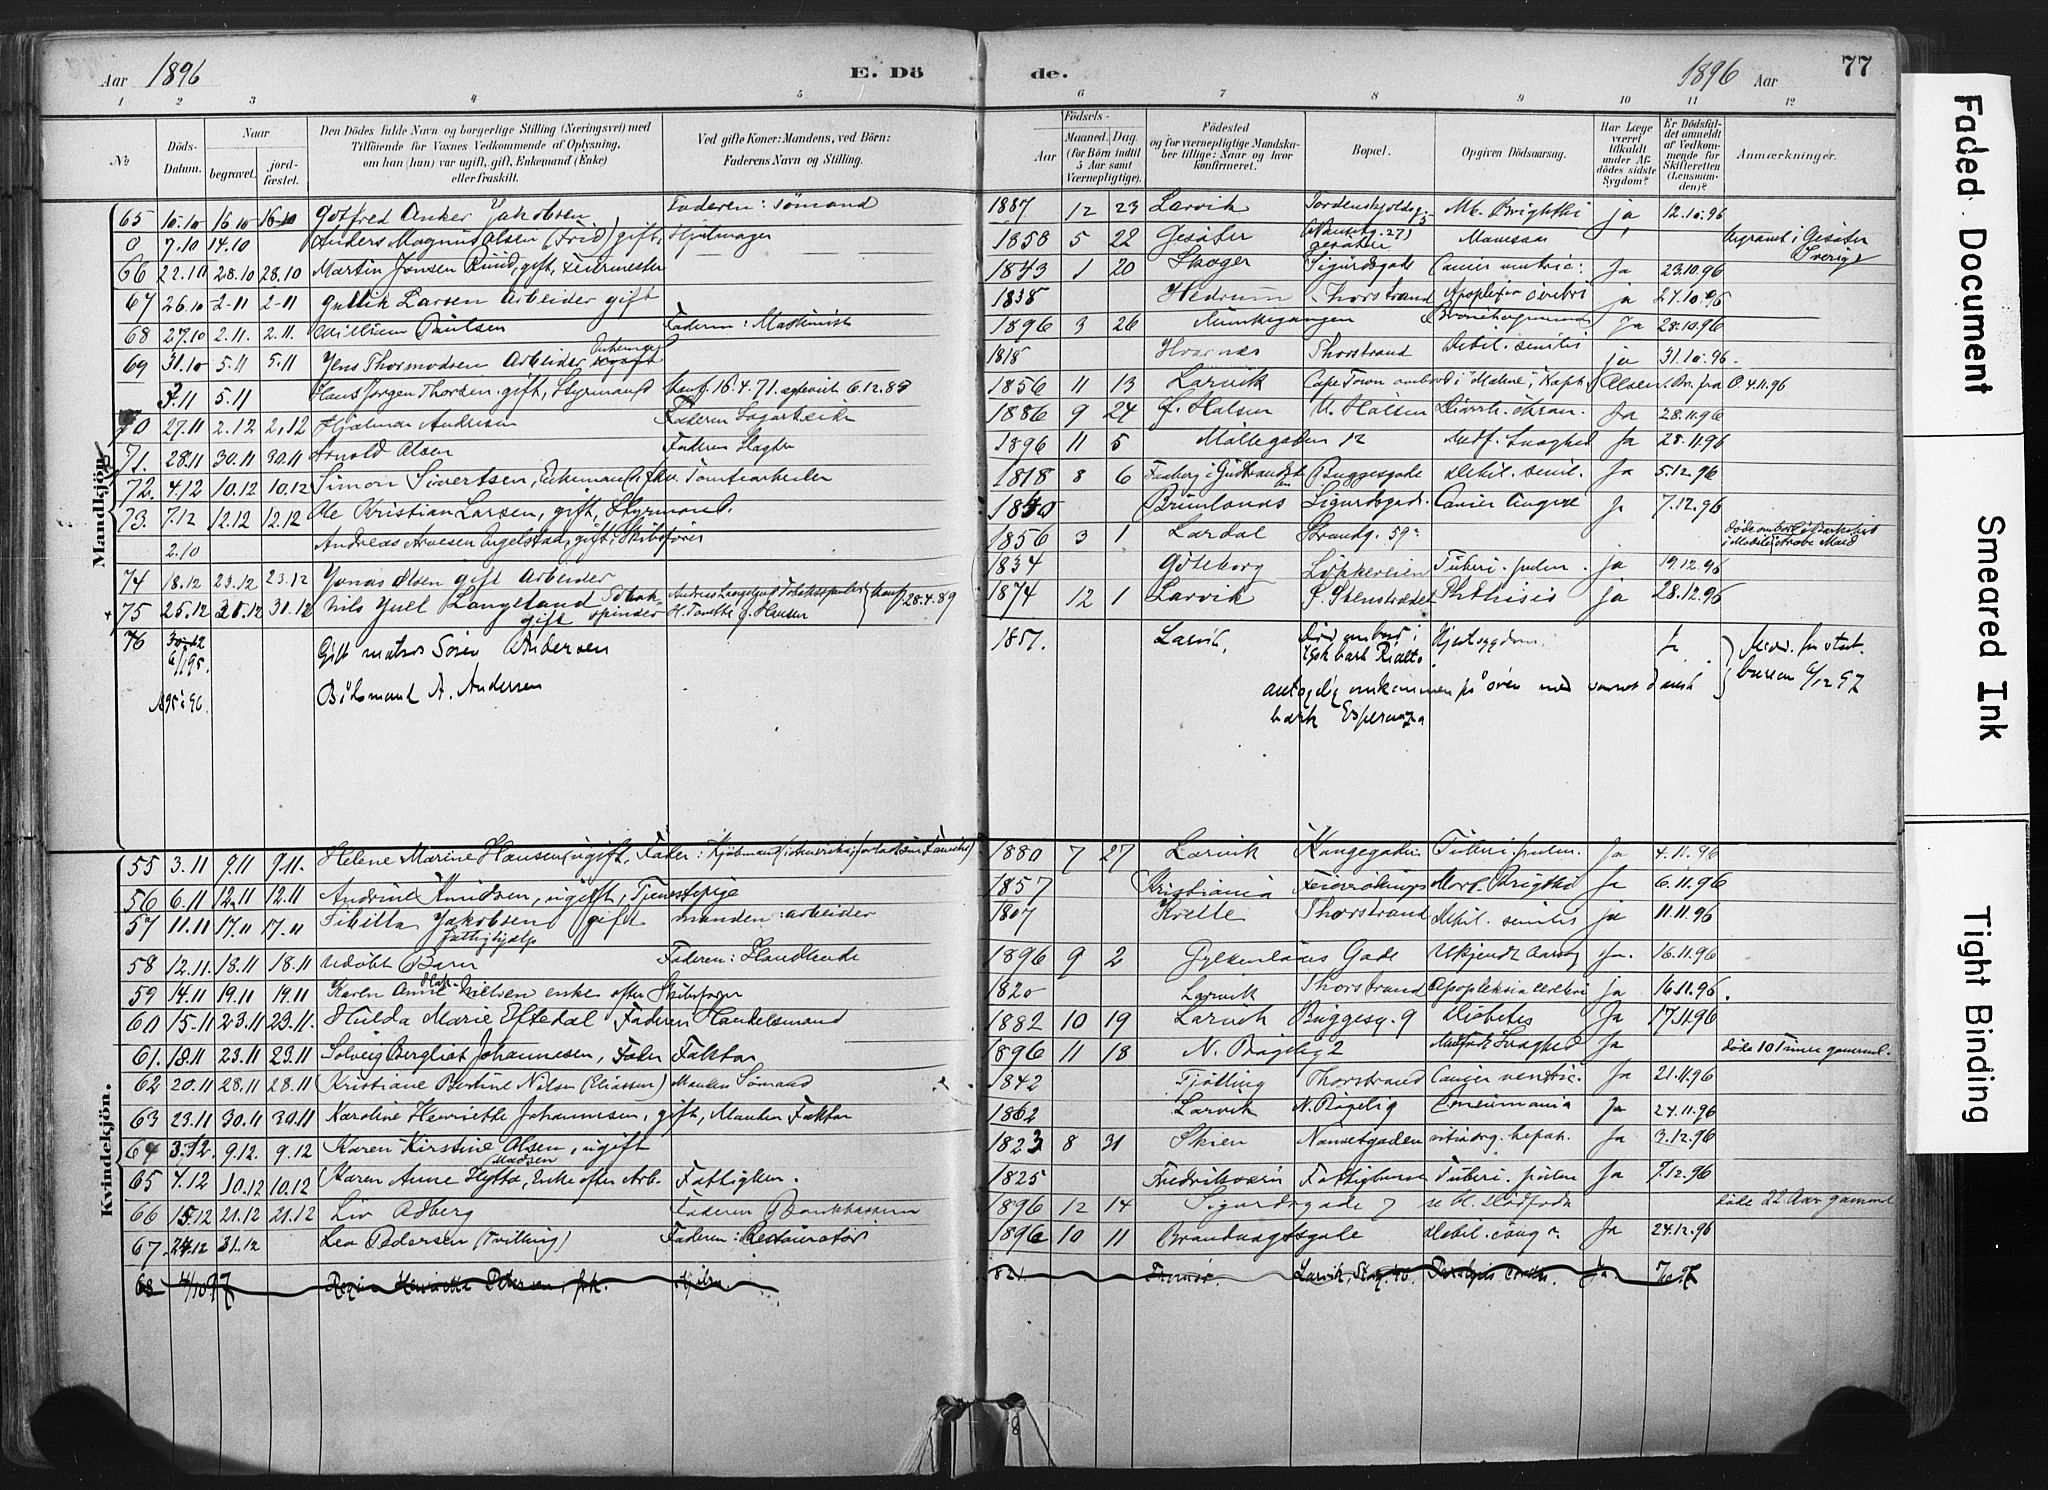 Aar 1896 E. Dö de. 1896 Aar 77
1 2 3 4 5 6 7 8 9 10 11 12
No Döds-Datum. Naar begravet. jord-fæstet. Den Dödes fulde Navn og borgerlige Stilling (Næringsvei) med Tilföiende for Voxnes Vedkommende af Oplysning, om han (hun) var ugift, gift, Enkemand (Enke) eller fraskilt. Ved gifte Koner: Mandens, ved Börn: Faderens Navn og Stilling. Födsels- Aar Maaned. Dag. (for Börn indtil 5 Aar samt Værnepligtige). Födested og for værnepligtige Mandskaber tillige: Naar og hvor konfirmeret. Bopæl. Opgiven Dödsaarsag. Har Læge været tilkaldt under Afdödes sidste Sygdom? Er Dödsfaldet anmeldt af Vedkommende for Skifteretten (Lensmanden)? Anmærkninger.
Mandkjön.
65 10.10 16.10 16.10 Gotfred Anker Jakobsen Faderen: Sømand 1887 12 23 Larvik Tordenskjoldsg. 5 Mb. Brighthi ja 12.10.96
0 7.10 14.10 Anders Magnus Olsen (Frid) gift, Hjulmager 1858 5 22 Gesäter Nansetg. 27) Gesäter begravet i Gesäter Sverige
66 22.10 28.10 28.10 Martin Jonsen Ruud, gift, Feiermester 1843 1 20 Skoger Sigurdsgade Cancer ventric: Ja 23.10.96
67 26.10 2-11 2-11 Gullik Larsen Arbeider gift 1838 Hedrum Thorstrand Apoplexia cerebri ja 27.10.96
68 27.10 2.11. 2.11. William Paulsen Faderen: Maskinist 1896 3 26 Munkegangen Ja 28.10.96
69 31.10 5.11 5.11 Jens Thormodsen Arbeider Enkemand 1818 Hvarnes Thorstrand Debil. senilis ja 31.10.96
3.11 5.11 Hans Jørgen Thorsen gift, Styrmand 1856 11 13 Larvik Cape Town ombord i "Malone", Kapt. Olsen. Br. fra O. 4.11.96
70 27.11 2.12 2.12 Hjalmar Andersen Faderen Sagarbeider 1886 9 24 L. Halsen U. Halsen Diarrh. chron. Ja 28.11.96
71. 28.11 30.11 30.11 Arnold Olsen Faderen Slagter 1896 11 5 Møllegaden 12 Medf. Svaghed Ja 28.11.96
72. 4.12 10.12 10.12 Simon Sivertsen, Enkemand, Tomtearbeider 1818 8 6 Faaberg i Gudbrandsdalen Buggesgade Debil. senil. Ja 5.12.96
73. 7.12 12.12 12.12 Ole Kristian Larsen, gift, Styrmand. 1850 Brunlanes Sigurdsgade. Cancer Ja 7.12.96
2.10 Andreas Arvesen Engelstad, gift, Skibsfører 1856 3 1 Lardal Strandg. 59
74 18.12 23.12 23.12 Jonas Olsen gift Arbeider 1834 Göteborg Løkkeveien Tuberc. pulm. ja 19.12.96
75 25.12 31.12 31.12 Nils Juel Langeland Tobakspinder gift konf. 28.4.89 1874 12 1 Larvik S. Stenstrædet Phthisis ja 28.12.96
76 30.12 6/1 95. Gift matros Søren Andersen 1857. Larvik, Død ombord i norsk bark Rialto Hjertesygdom. Ja Medd. fra stat. bureau 6/12 97
1895 à 96. Baadsmand A. Andersen antagelig omkommen på øren med samt dansk bark Esperanza
Kvindekjön.
55 3.11 9.11 9.11. Helene Marine Hansen ugift, Fader: Kjøbmand (i Amerika, forladt sin Familie) 1880 7 27 Larvik Kongegaden Tuberc. pulm. Ja 4.11.96
56 6.11 12.11 12.11 Andrine Knudsen, ugift, Tjenestepige 1857 Kristiania Morb. Brigthi Ja 6.11.96
57 11.11 17.11 17.11 Sibilla Jakobsen gift Fattighjælp manden: arbeider 1807 Kvelle Thorstrand Debil. senilis ja 11.11.96
58 12.11. 18.11 18.11 Udøbt Barn Faderen: Handlende 1896 9 2 Gyldenløves Gade Ukjendt Aarsag Ja. 16.11.96
59 14.11 19.11 19.11 Karen Anne Nielsen enke efter Skibsfører 1820 Larvik Thorstrand Apopleksia cerebri ja 16.11.96.
60 15-11 23.11 23.11. Hulda Marie Eftedal Faderen Handelsmand 1882 10 19 Larvik Buggesg. 9 Diabetes Ja 17.11.96
61. 18.11 23.11 23.11 Solveig Bergliot Johannesen, Fader Faktor 1896 11 18 N. Bøgelig 2 Medfødt Svaghed Ja døde 10 Timer gammel.
62 20.11 28.11 28.11 Kristiane Bertine Nilsen (Eliassen) Manden Sømand 1842 Tjølling Thorstrand Cancer ventric. Ja 21.11.96
63 23.11 30.11 30.11 Karoline Henriette Johannesen, gift, Manden Faktor 1862 Larvik N. Bøgelig Ja 24.11.96
64 3.12. 9.12. 9.12 Karen Kirstine Olsen, ugift 1823 8 31 Skien Nansetgaden vitium org. hepat. Ja 3.12.96
65 4.12 10.12 10.12 Karen Anne Madsen Hytta, Enke efter Arb. Fattighm. 1825 Fredriksværn Fattighuset Tuberc. pulm Ja 7.12.96
66 15.12 21.12 21.12 Liv Adberg Faderen Bankkasserer 1896 12 14 Sigurdsgade 7 døde 22 Aar gammel
67. 24.12 31.12 Lea Pedersen (Tvilling) Faderen: Restauratør 1896 10 11 Brandvagtsgade Debil. cong. Ja 24.12.96
68 4/10 97 Henriette Petersen, 1821 Tromsø. Larvik, Storg. 40 Paralysis cordis. Ja. 7/10 97
Faded Document
Smeared Ink
Tight Binding